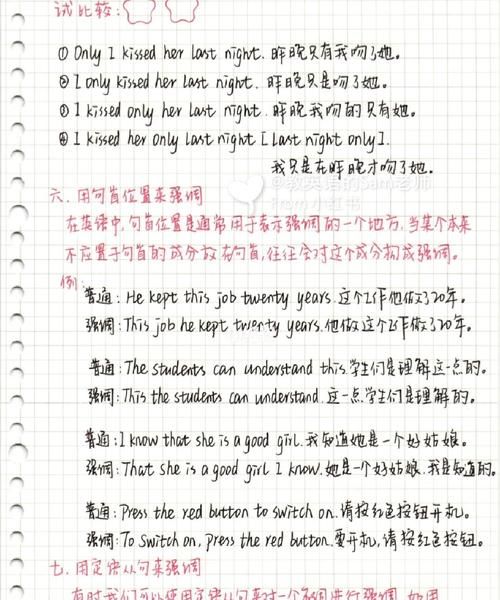 试比较:
① Only I kissed her last night. 昨晚只有我吻了她。
② I only kissed her last night. 昨晚只是吻了她。
③ I kissed only her last night. 昨晚我吻的只有她。
④ I kissed her only last night [last night only].
我只是在昨晚才吻了她。
@教英语的Sam老师
From 小红书
六. 用句首位置来强调
在英语中,句首位置是通常用于表示强调的一个地方,当某个本来
不应置于句首的成分放在句首,往往会对这个成分构成强调。
例:
普通: He kept this job twenty years. 这个工作他做了20年。
强调: This job he kept twenty years. 他做这个工作做了20年。
普通: The students can understand this. 学生们是理解这一点的。
强调: This the students can understand. 这一点,学生们是理解的。
普通: I know that she is a good girl. 我知道她是一个好姑娘。
强调: That she is a good girl I know. 她是一个好姑娘,我是知道的。
普通: Press the red button to switch on. 请按红色按钮开机。
强调: To switch on, press the red button. 要开机,请按红色按钮。
七. 用定语从句来强调
有时我们可以使用定语从句来对一个名词进行强调,如用